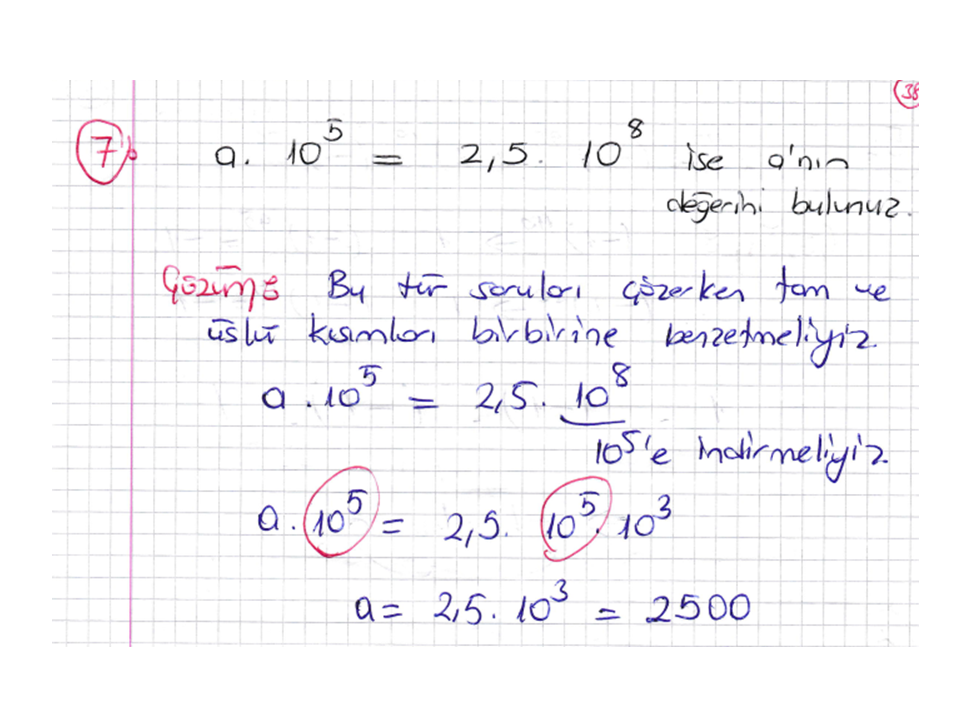 38
7) a. 10⁵ = 2,5. 10⁸ ise a'nın
değerini bulunuz.
Çözüm: Bu tür soruları çözerken tam ve
üslü kısımları birbirine benzetmeliyiz.
a . 10⁵ = 2,5. 10⁸
10⁵'e indirmeliyiz.
a. 10⁵ = 2,5. 10⁵. 10³
a = 2,5. 10³ = 2500